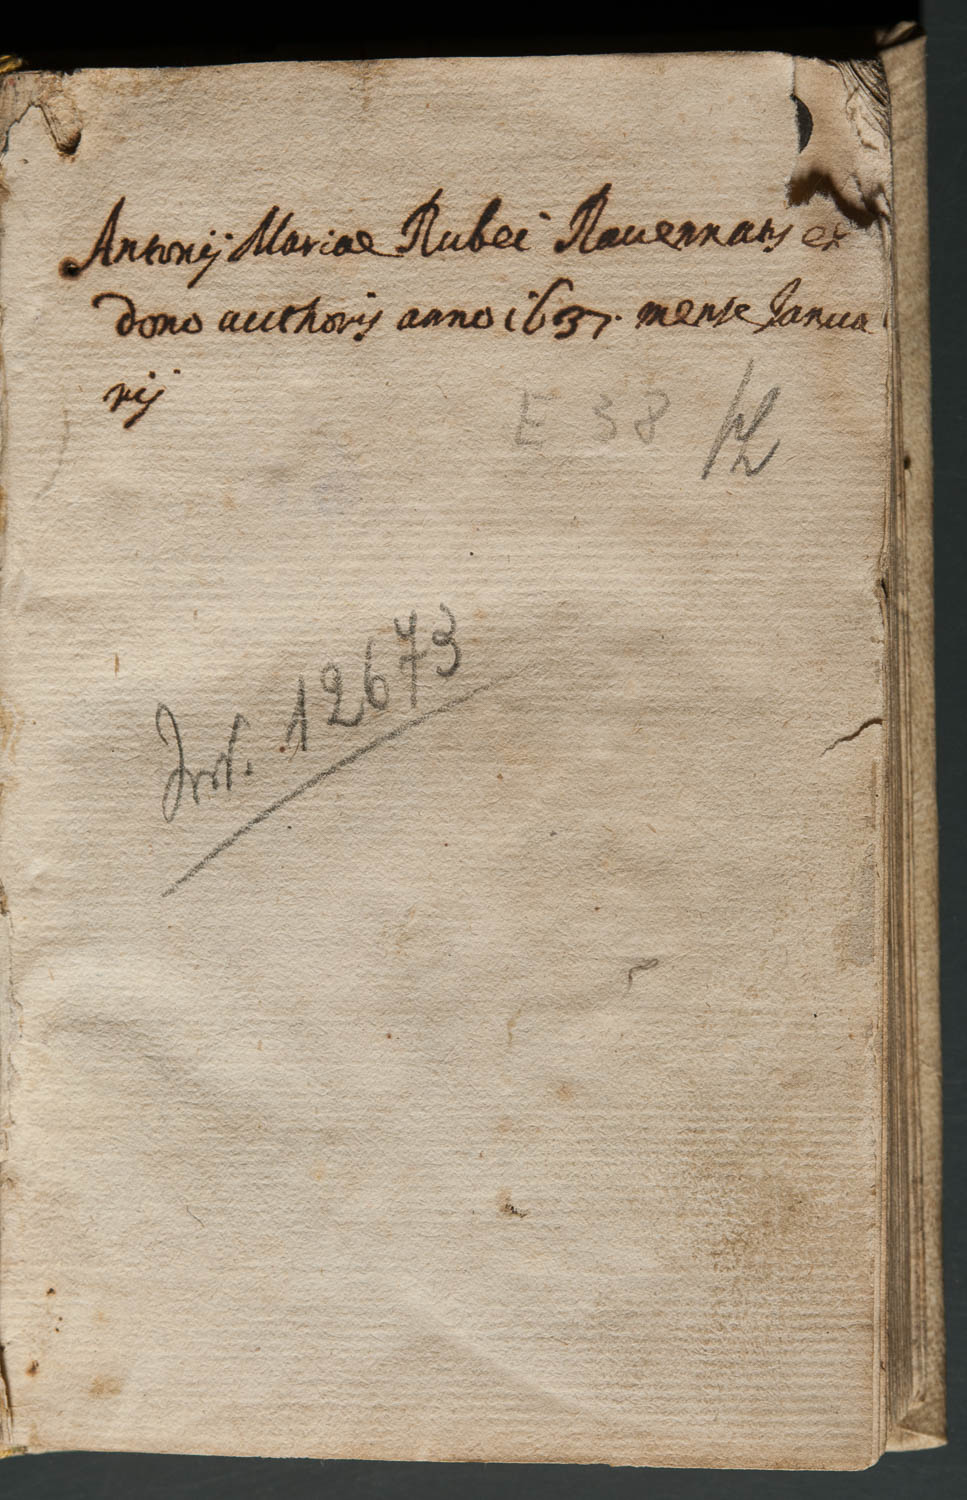 Antonij Mariae Rubei Rauennatis ex
dono authoris anno 1637. mense Janua
rij
E 38
Inv. 12673